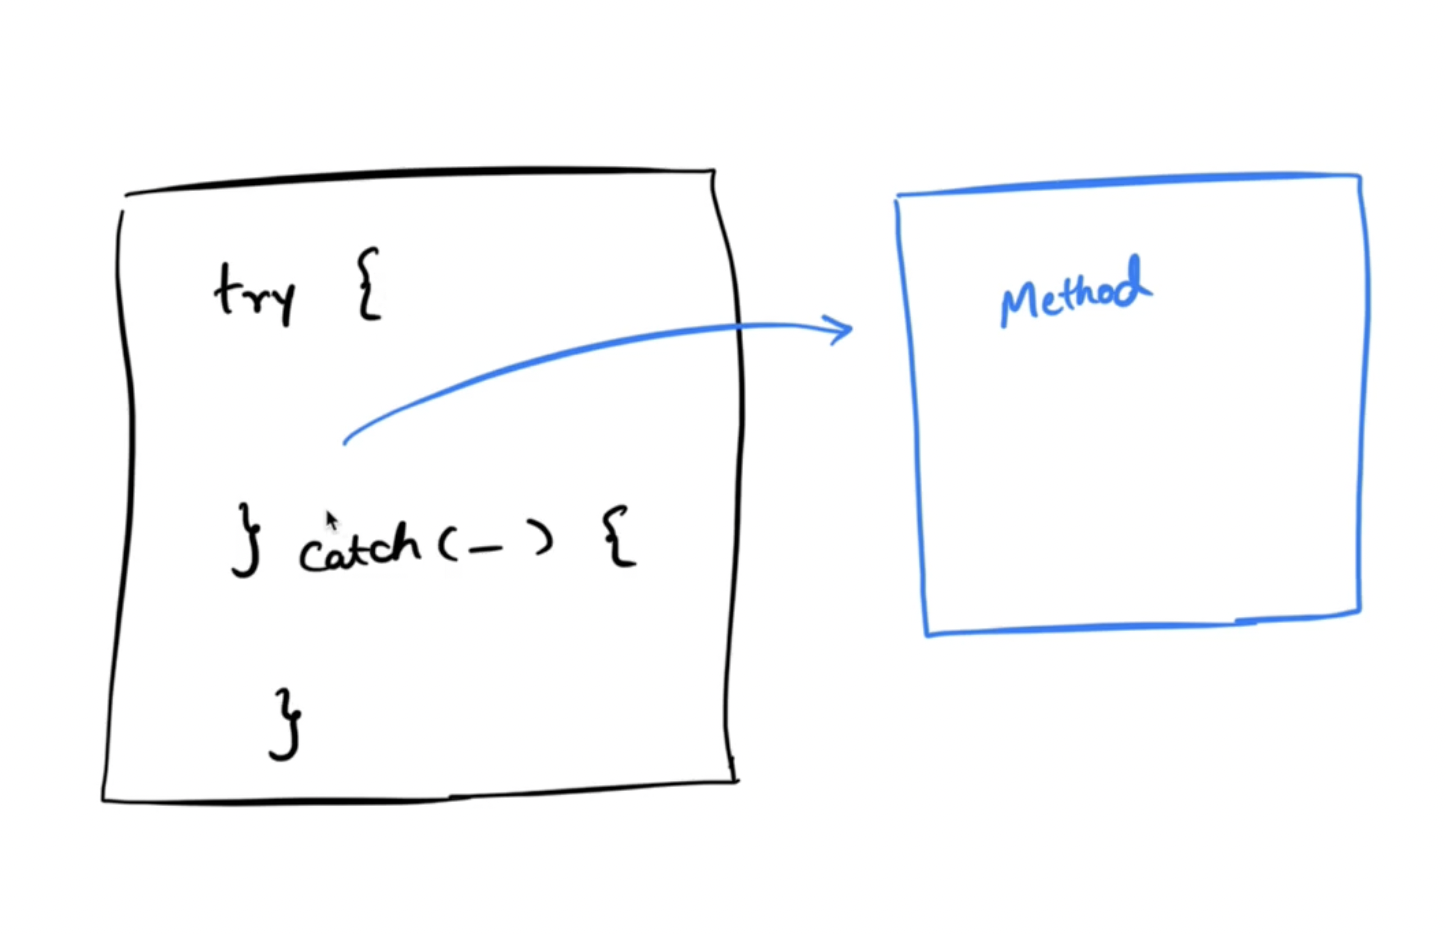 try {
} catch ( _ ) {
}
Method